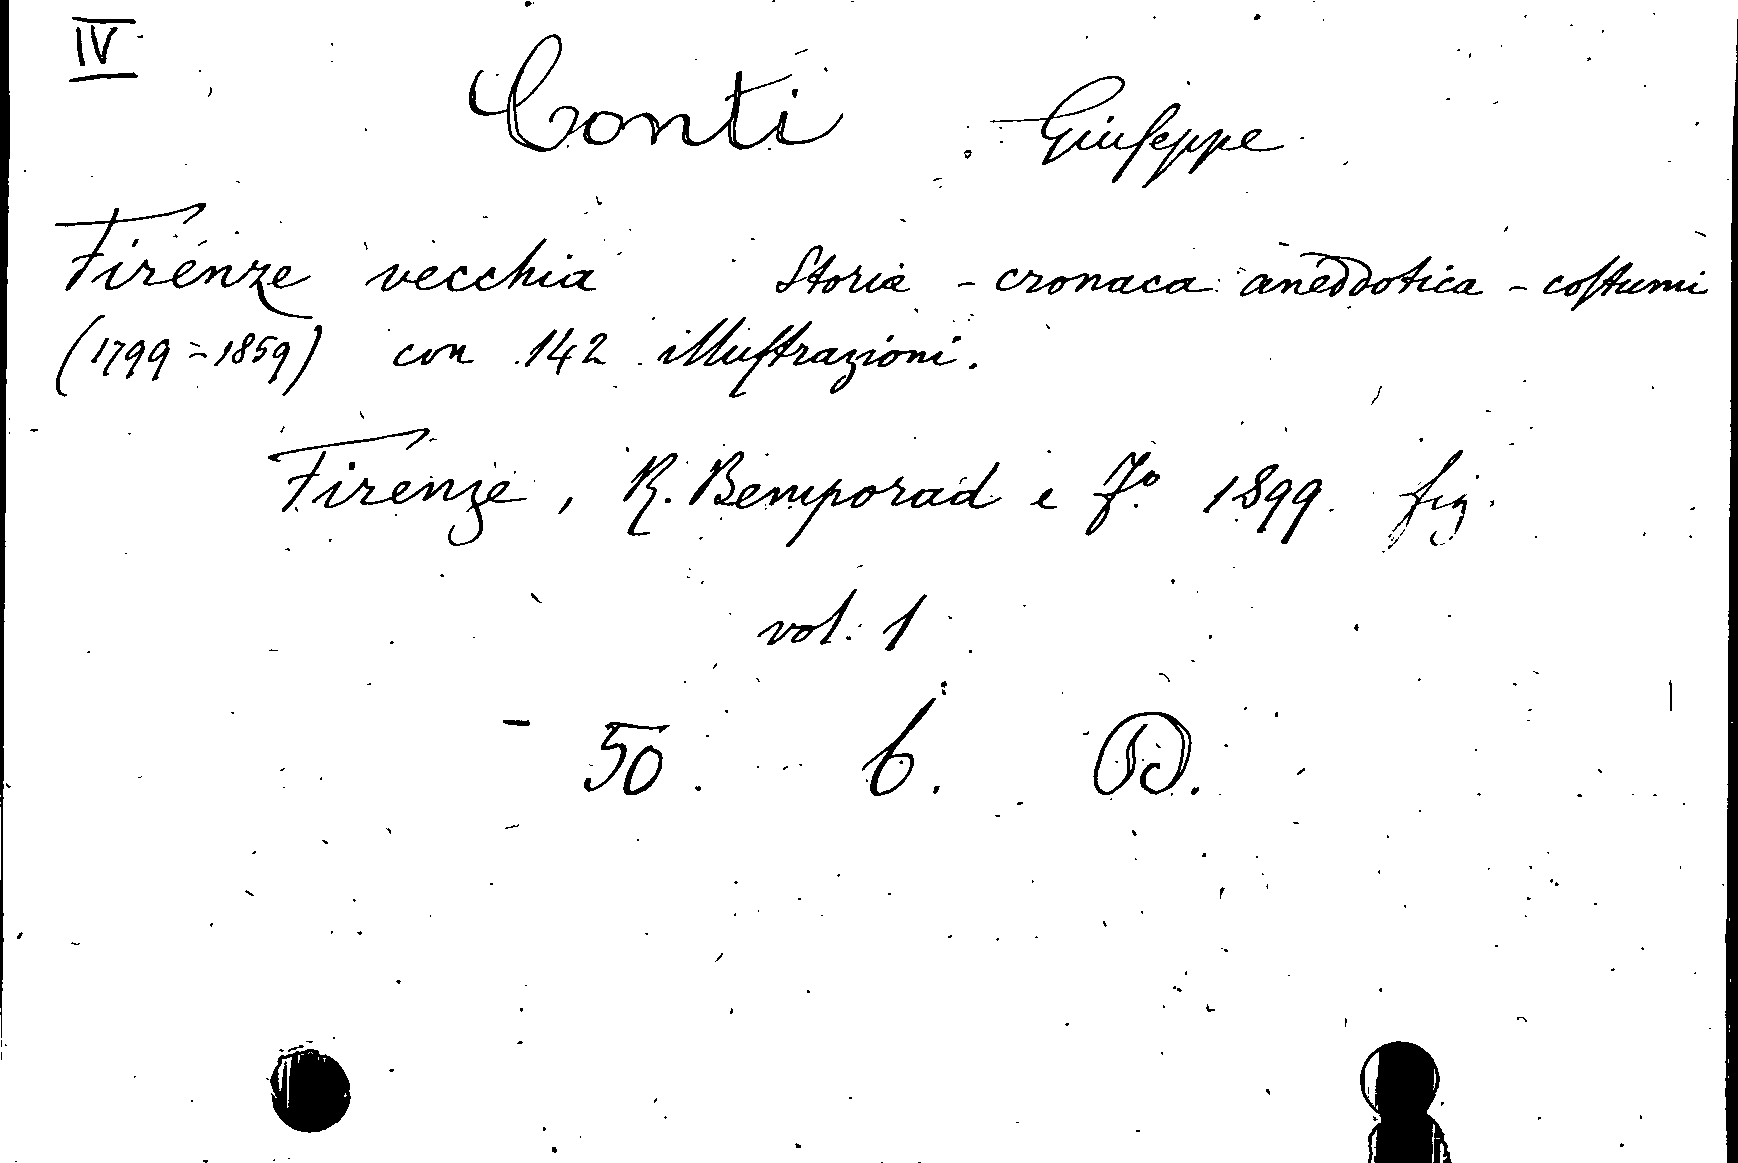 IV
Conti Giuseppe
Firenze vecchia Storia - cronaca aneddotica - costumi
(1799-1859) con 142 illustrazioni.
Firenze, R. Bemporad e Fº 1899. fig.
vol. 1
- 50. 6. D.